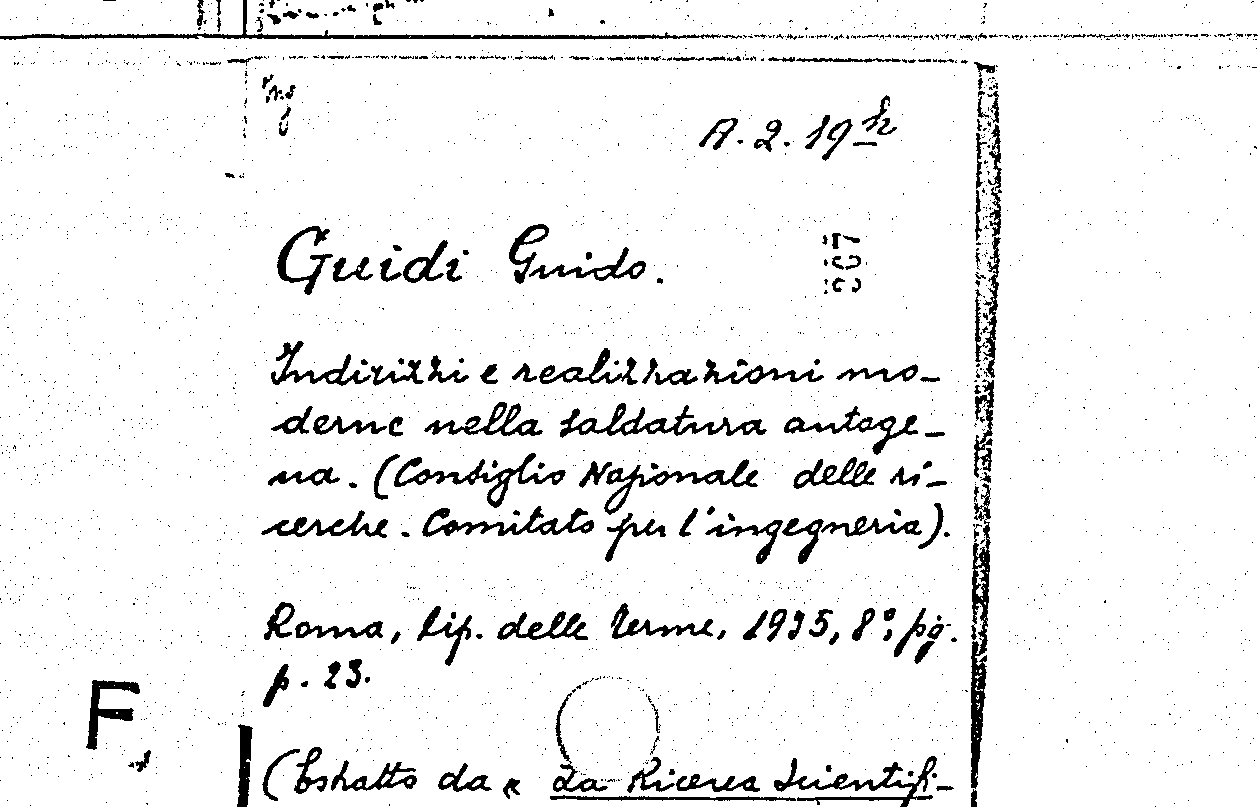 Ing
A. 2. 19h
Guidi Guido.
Indirizzi e realizzazioni mo-
derne nella saldatura autoge-
na. (Consiglio Nazionale delle ri-
cerche. Comitato per l'ingegneria).
Roma, tip. delle terme, 1935, 8°, pg.
p. 23.
F
(Estratto da « La Ricerca Scientifi-